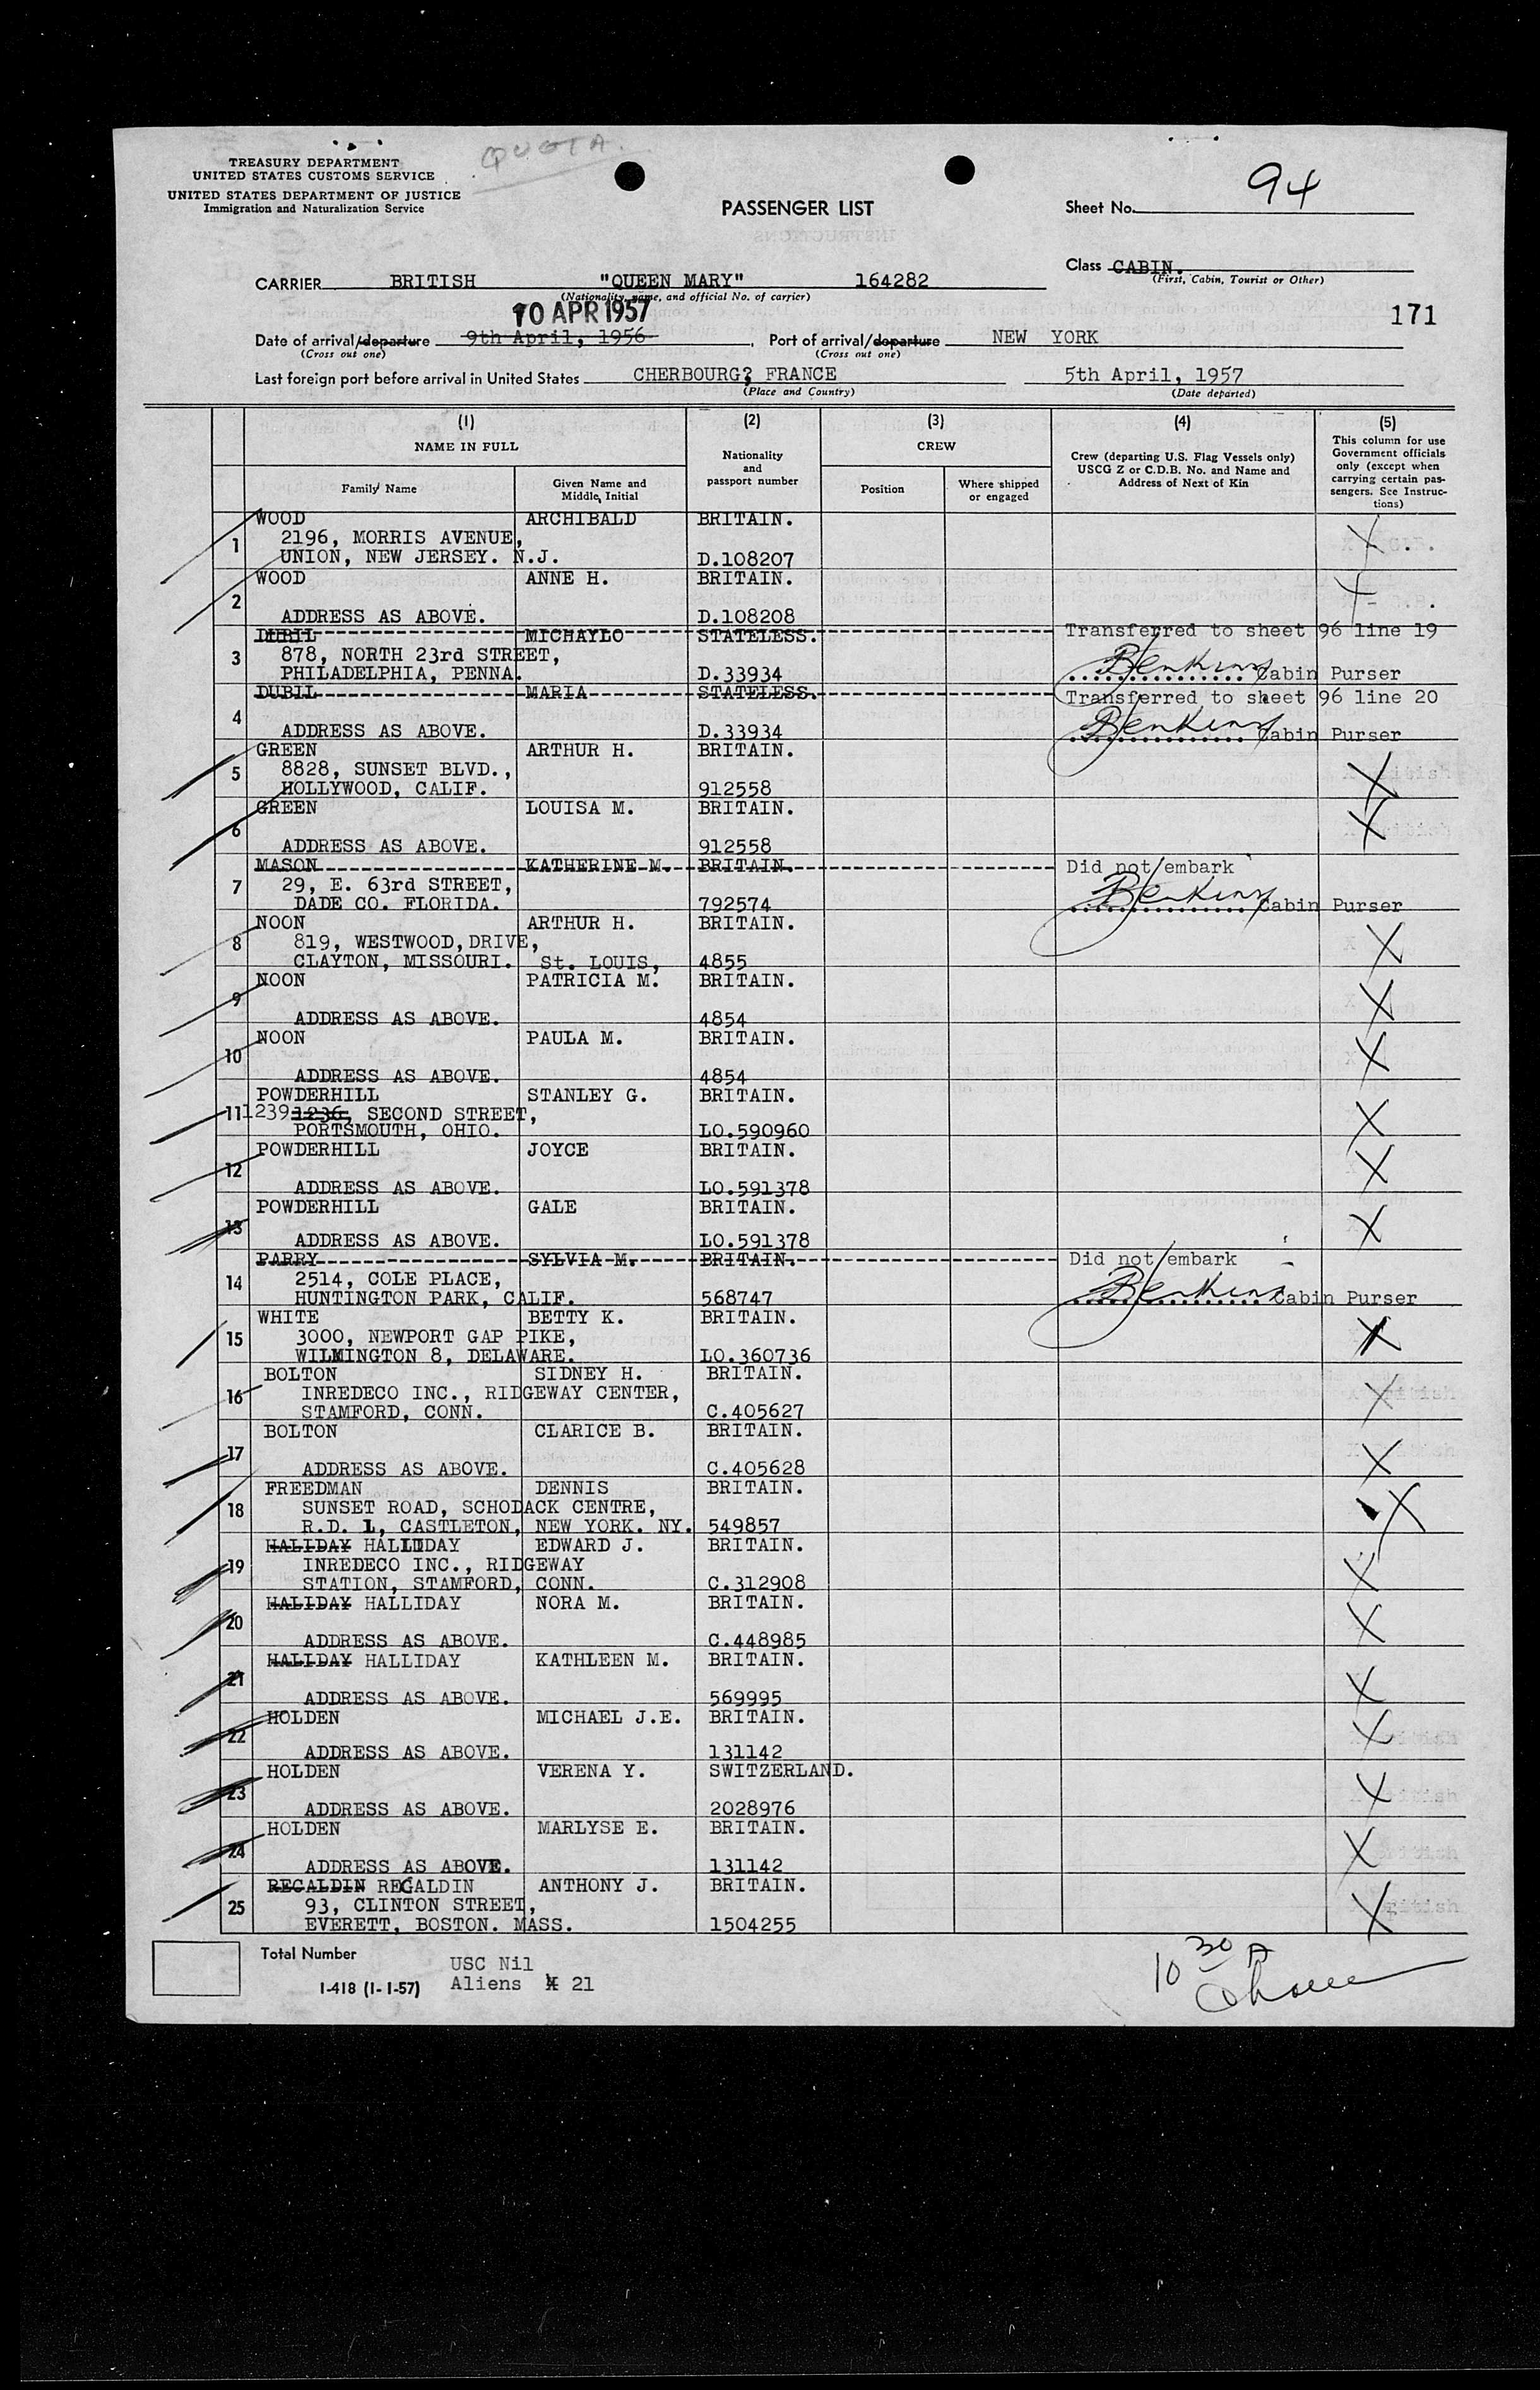 QUOTA.
TREASURY DEPARTMENT
UNITED STATES CUSTOMS SERVICE
UNITED STATES DEPARTMENT OF JUSTICE
Immigration and Naturalization Service
PASSENGER LIST
Sheet No. 94
Class CABIN.
(First, Cabin, Tourist or Other)
CARRIER BRITISH "QUEEN MARY" 164282
(Nationality, name, and official No. of carrier)
10 APR 1957
171
Date of arrival/departure 9th April, 1956, Port of arrival/departure NEW YORK
(Cross out one) (Cross out one)
Last foreign port before arrival in United States CHERBOURG? FRANCE 5th April, 1957
(Place and Country) (Date departed)
(1) (2) (3) (4) (5)
NAME IN FULL
Family Name
Given Name and Middle Initial
Nationality and passport number
CREW
Position
Where shipped or engaged
Crew (departing U.S. Flag Vessels only) USCG Z or C.D.B. No. and Name and Address of Next of Kin
This column for use Government officials only (except when carrying certain passengers. See Instructions)
1 WOOD ARCHIBALD BRITAIN.
2196, MORRIS AVENUE,
UNION, NEW JERSEY. N.J. D.108207
2 WOOD ANNE H. BRITAIN.
ADDRESS AS ABOVE. D.108208
3 DUBIL MICHAYLO STATELESS. Transferred to sheet 96 line 19
878, NORTH 23rd STREET,
PHILADELPHIA, PENNA. D.33934 Cabin Purser
4 DUBIL MARIA STATELESS. Transferred to sheet 96 line 20
ADDRESS AS ABOVE. D.33934 Cabin Purser
5 GREEN ARTHUR H. BRITAIN.
8828, SUNSET BLVD.,
HOLLYWOOD, CALIF. 912558
6 GREEN LOUISA M. BRITAIN.
ADDRESS AS ABOVE. 912558
7 MASON KATHERINE M. BRITAIN. Did not embark
29, E. 63rd STREET,
DADE CO. FLORIDA. 792574 Cabin Purser
8 NOON ARTHUR H. BRITAIN.
819, WESTWOOD, DRIVE,
CLAYTON, MISSOURI. St. LOUIS, 4855
9 NOON PATRICIA M. BRITAIN.
ADDRESS AS ABOVE. 4854
10 NOON PAULA M. BRITAIN.
ADDRESS AS ABOVE. 4854
11 POWDERHILL STANLEY G. BRITAIN.
1239 1236, SECOND STREET,
PORTSMOUTH, OHIO. LO.590960
12 POWDERHILL JOYCE BRITAIN.
ADDRESS AS ABOVE. LO.591378
13 POWDERHILL GALE BRITAIN.
ADDRESS AS ABOVE. LO.591378
14 PARRY SYLVIA M. BRITAIN. Did not embark
2514, COLE PLACE,
HUNTINGTON PARK, CALIF. 568747 Cabin Purser
15 WHITE BETTY K. BRITAIN.
3000, NEWPORT GAP PIKE,
WILMINGTON 8, DELAWARE. LO.360736
16 BOLTON SIDNEY H. BRITAIN.
INREDECO INC., RIDGEWAY CENTER,
STAMFORD, CONN. C.405627
17 BOLTON CLARICE B. BRITAIN.
ADDRESS AS ABOVE. C.405628
18 FREEDMAN DENNIS BRITAIN.
SUNSET ROAD, SCHODACK CENTRE,
R.D. 1, CASTLETON, NEW YORK. NY. 549857
19 HALIDAY HALLIDAY EDWARD J. BRITAIN.
INREDECO INC., RIDGEWAY
STATION, STAMFORD, CONN. C.312908
20 HALIDAY HALLIDAY NORA M. BRITAIN.
ADDRESS AS ABOVE. C.448985
21 HALIDAY HALLIDAY KATHLEEN M. BRITAIN.
ADDRESS AS ABOVE. 569995
22 HOLDEN MICHAEL J.E. BRITAIN.
ADDRESS AS ABOVE. 131142
23 HOLDEN VERENA Y. SWITZERLAND.
ADDRESS AS ABOVE. 2028976
24 HOLDEN MARLYSE E. BRITAIN.
ADDRESS AS ABOVE. 131142
25 REGALDIN REGALDIN ANTHONY J. BRITAIN.
93, CLINTON STREET,
EVERETT, BOSTON. MASS. 1504255
Total Number
USC Nil
I-418 (1-1-57) Aliens 21
10 30 A